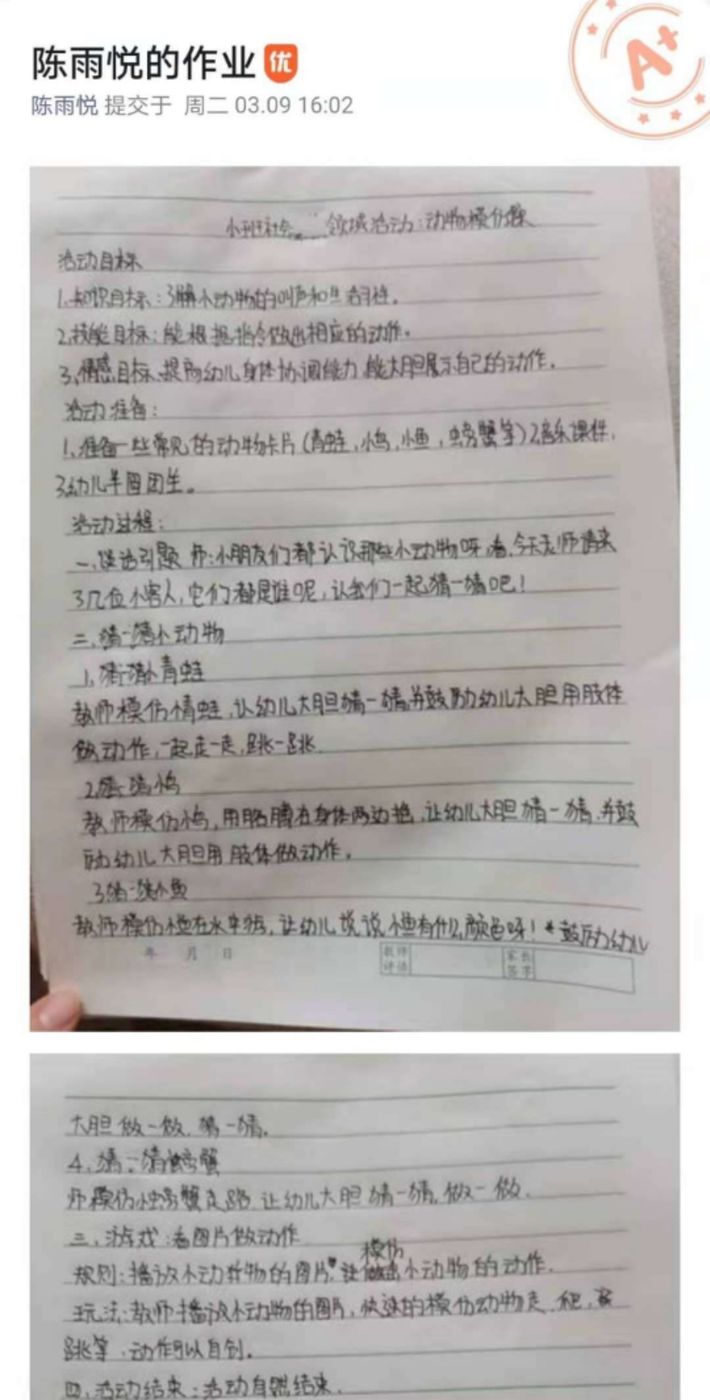 陈雨悦的作业 优
A+
陈雨悦 提交于 周二 03.09 16:02
小班社会 领域活动:动物模仿操
活动目标
1.知识目标:了解小动物的叫声和生活习性。
2.技能目标:能根据指令做出相应的动作。
3.情感目标:提高幼儿身体协调能力,能大胆展示自己的动作。
活动准备:
1.准备一些常见的动物卡片(青蛙,小鸡,小鱼,螃蟹等)2.音乐课件.
3.幼儿半圆团坐。
活动过程:
一、谈话引题 师:小朋友们都认识那些小动物呀,看,今天老师请来
了几位小客人,它们都是谁呢,让我们一起猜一猜吧!
二、猜一猜小动物
1.猜一猜小青蛙
教师模仿情蛙,让幼儿大胆猜一猜,并鼓励幼儿大胆用肢体
做动作,一起走一走,跳一跳.
2.猜一猜小鸡
教师模仿小鸡,用胳膊在身体两边,让幼儿大胆猜一猜,并鼓
励幼儿大胆用肢体做动作。
3.猜一猜小鱼
教师模仿小鱼在水中游,让幼儿说说小鱼有什么颜色呀!*鼓励幼儿
年 月 日
教师评语
家长签字
大胆做一做,猜一猜.
4.猜一猜螃蟹
师模仿小螃蟹走路,让幼儿大胆猜一猜,做一做.
三、游戏:看图片做动作
模仿
规则:播放小动物的图片,小动物的动作.
玩法:教师播放小动物的图片,快速的模仿动物走,爬,
跳等,动作可以自创.
四、活动结束:活动自然结束.